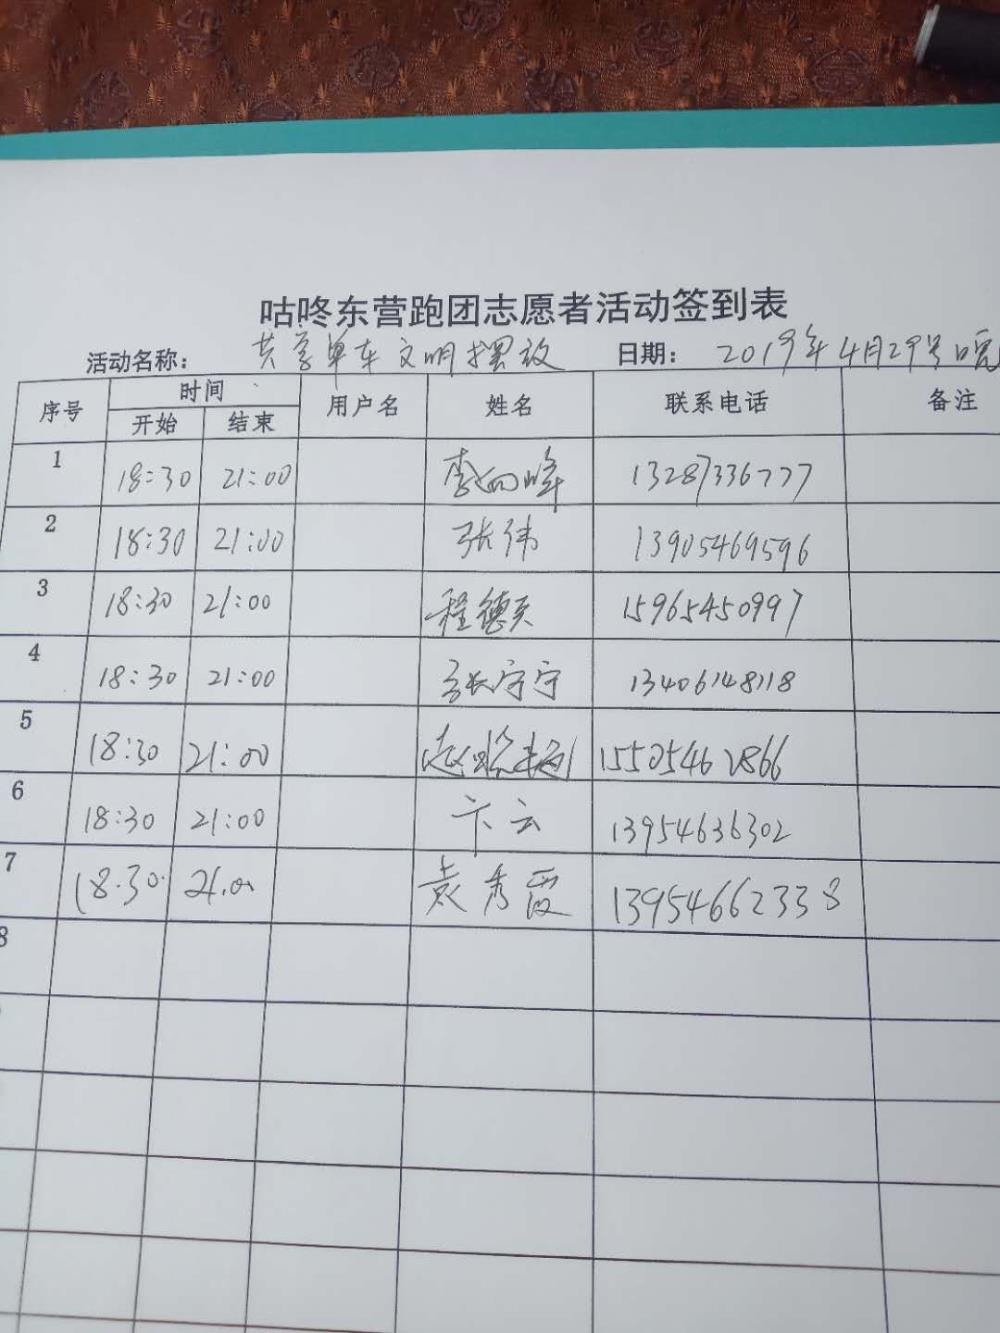 咕咚东营跑团志愿者活动签到表
活动名称: 共享单车文明摆放 日期: 2019年4月29号晚
序号 时间 用户名 姓名 联系电话 备注
开始 结束
1 18:30 21:00 李 峰 13287336777
2 18:30 21:00 张伟 13905469596
3 18:30 21:00 程德 15965450997
4 18:30 21:00 张宁宁 13406148118
5 18:30 21:00 赵 15505462866
6 18:30 21:00 卞云 13954636302
7 18.30. 21.00 袁秀霞 13954662338
8